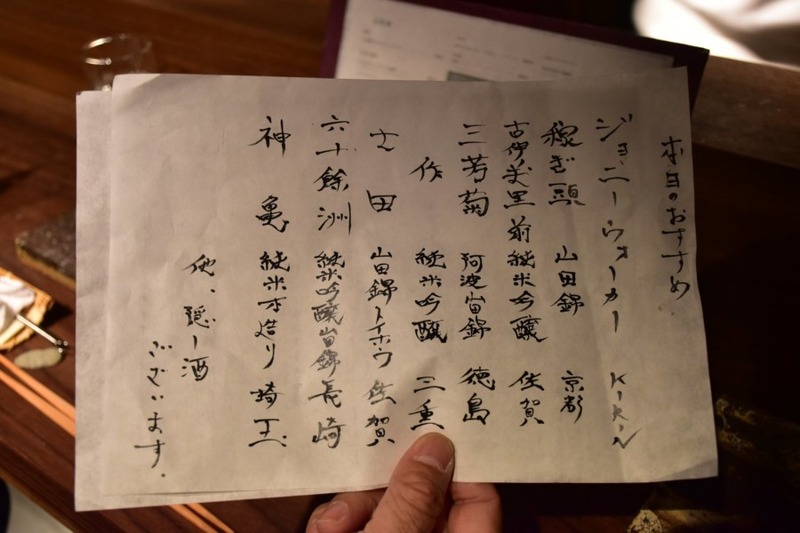 本日のおすすめ
ジョニーウォーカー KIKIN
稼ぎ頭 山田錦 京都
古伊万里 前 純米吟醸 佐賀
三芳菊 阿波山田錦 徳島
作 純米吟醸 三重
七田 山田錦 トイホウ 佐賀
六十餘洲 純米吟醸山田錦 長崎
神亀 純米 造り 埼玉
他、隠し酒
ございます.